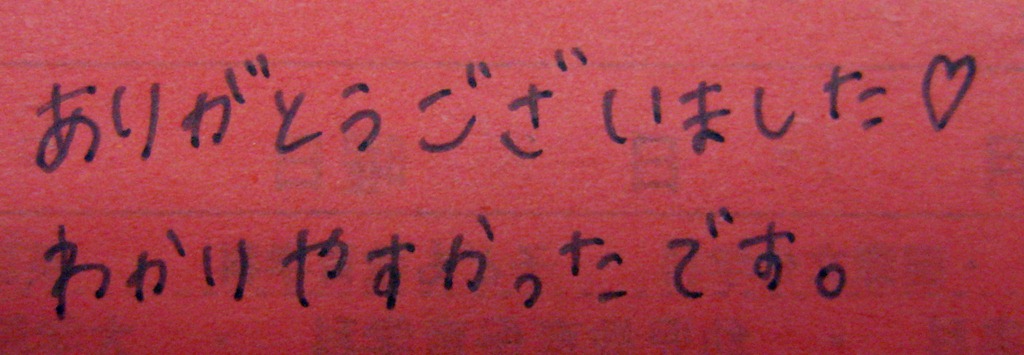 ありがとうございました♡
わかりやすかったです。